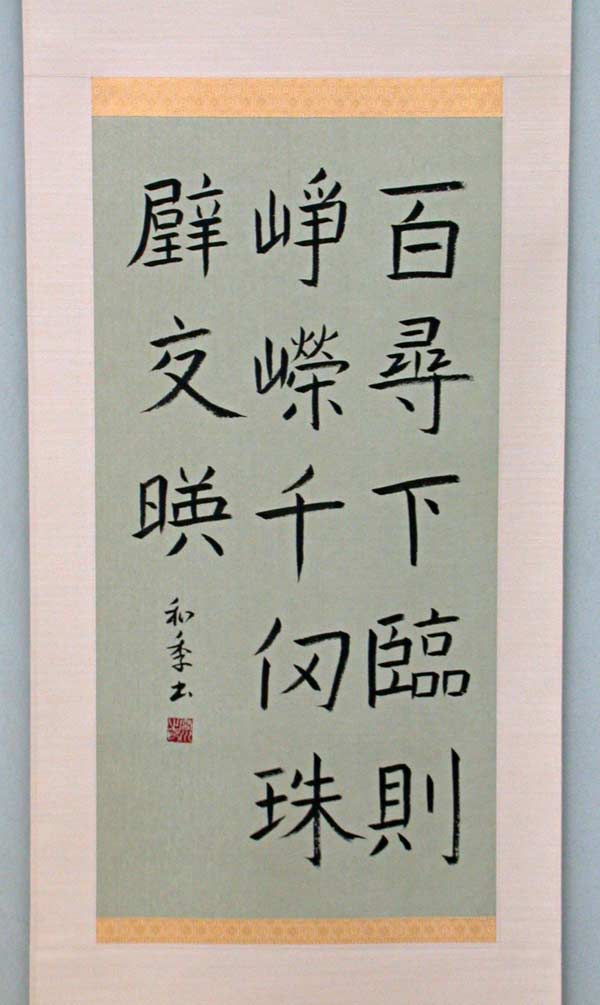 百尋下臨則
崢嶸千仞珠
璧交暎
和季書